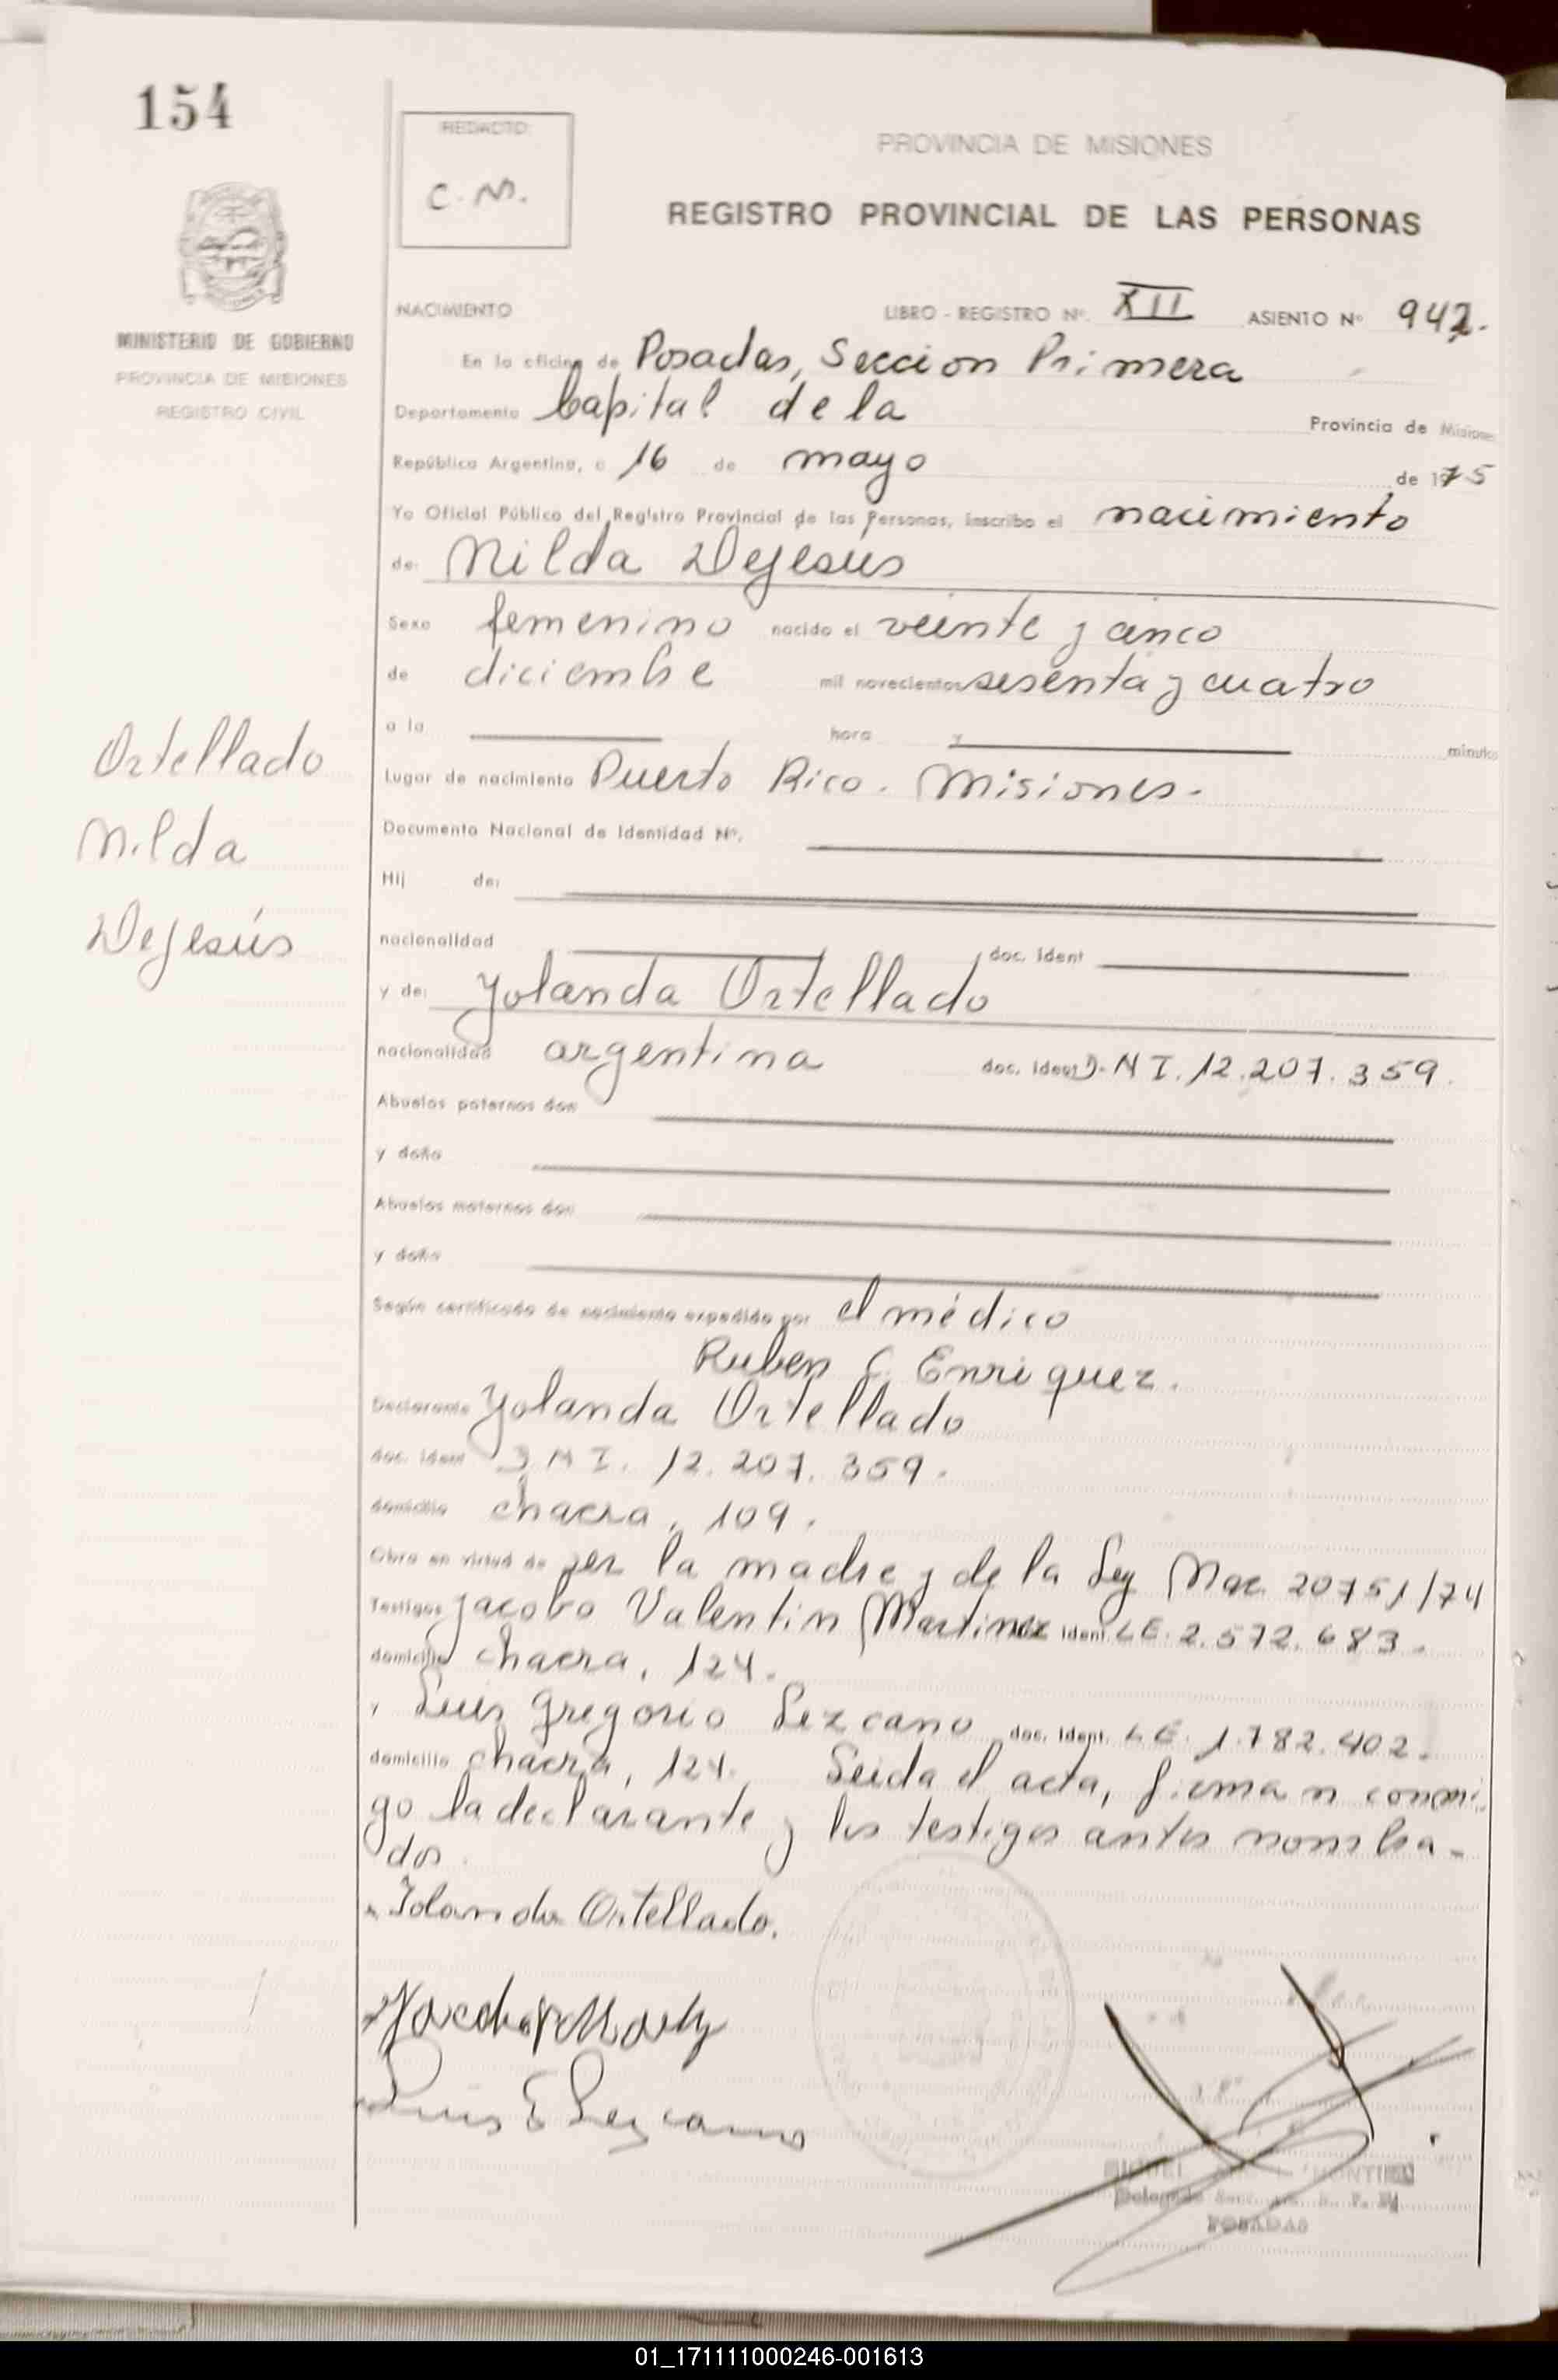 154
REDACTO:
C. M.
PROVINCIA DE MISIONES
REGISTRO PROVINCIAL DE LAS PERSONAS
MINISTERIO DE GOBIERNO
PROVINCIA DE MISIONES
REGISTRO CIVIL
NACIMIENTO LIBRO - REGISTRO Nº. XII ASIENTO Nº 942.
En la oficina de Posadas, Seccion Primera
Departamento Capital de la Provincia de Misiones
República Argentina, a 16 de mayo de 1975
Yo Oficial Público del Registro Provincial de las Personas, inscribo el nacimiento
de: Nilda DeJesus
Sexo femenino nacido el veinte y cinco
de diciembre mil novecientos sesenta y cuatro
a la hora y minutos
Lugar de nacimiento Puerto Rico. Misiones.
Documento Nacional de Identidad Nº.
Hij de:
nacionalidad doc. Ident
y de: Yolanda Ortellado
nacionalidad argentina doc. Ident D.N I. 12.207.359.
Abuelos paternos don
y doña
Abuelos maternos don
y doña
Según certificado de nacimiento expedido por el médico
Ruben C. Enriquez.
Declarante Yolanda Ortellado
doc. Ident D.N I. 12.207.359.
domicilio chacra, 109.
Obra en virtud de ser la madre y de la Ley Nac. 20751/74
Testigos Jacobo Valentin Martinez Ident. LE. 2.572.683.
domicilio chacra, 124.
y Luis Gregorio Lezcano doc. Ident. LE. 1.782.402.
domicilio chacra, 124. Leida el acta, firman conmi-
go la declarante y los testigos antes nombra-
dos.
Ortellado
Nilda
DeJesús
Iolanda Ortellado.
Luis G Lezcano
MONTIEL
Delegado
POSADAS
01_171111000246-001613